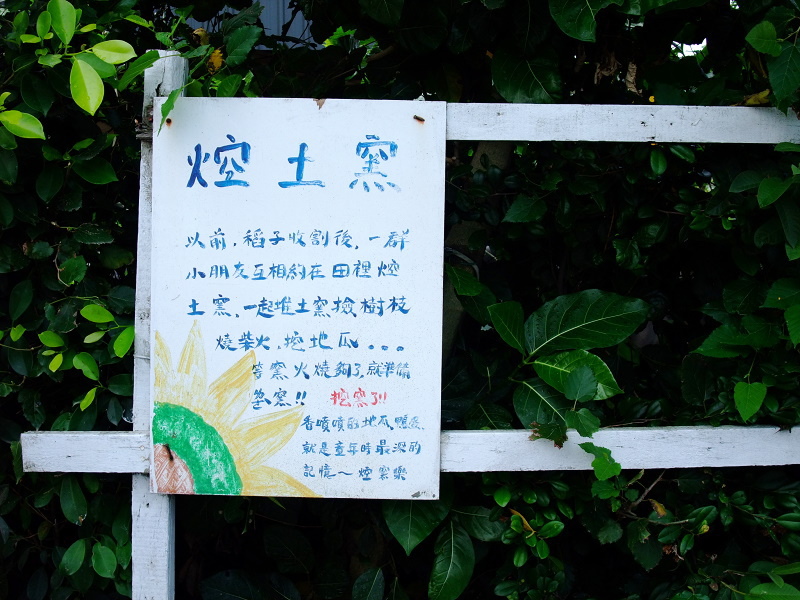 焢土窯
以前,稻子收割後,一群
小朋友互相約在田裡焢
土窯,一起堆土窯撿樹枝
燒柴火,挖地瓜...
等窯火燒夠了,就準備
墊窯!! 挖窯了!!
香噴噴的地瓜、鴨蛋、
就是童年時最深的
記憶~焢窯樂